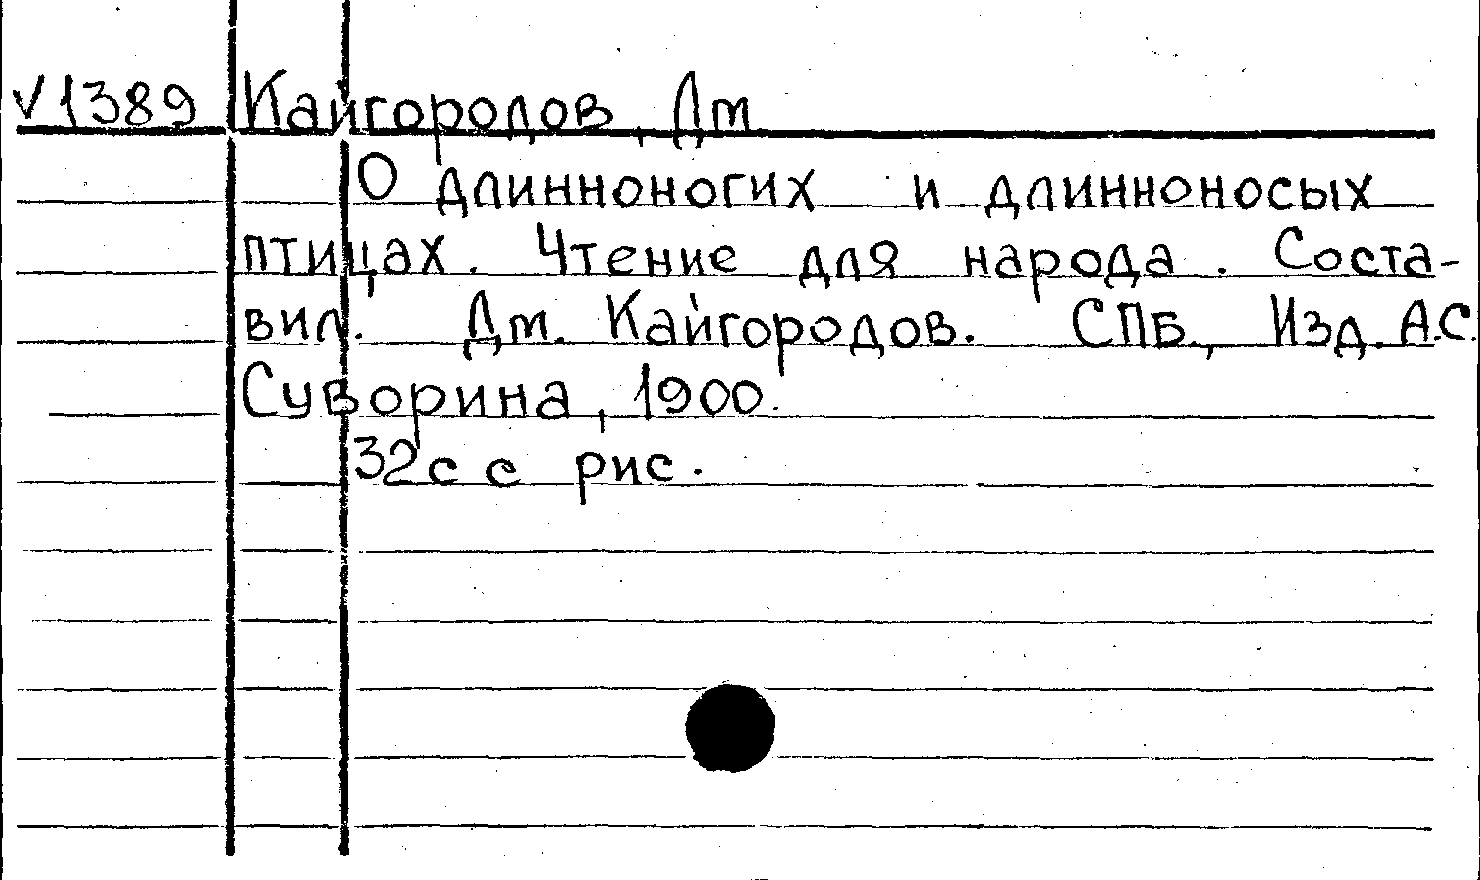 V1389 Кайгородов, Дм
О длинноногих и длинноносых
птицах. Чтение для народа. Соста-
вил. Дм. Кайгородов. СПБ., Изд. А.С.
Суворина, 1900.
32с с рис.